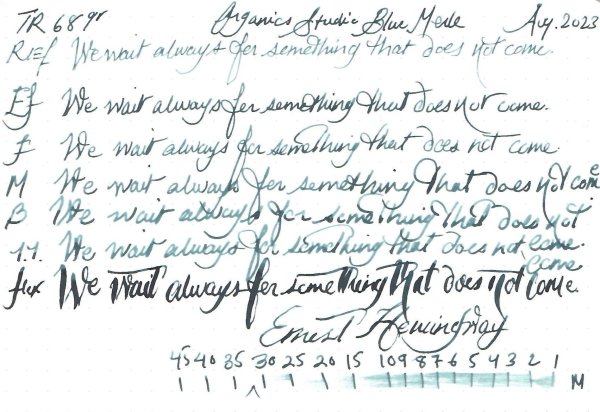 TR 68gr Organics Studio Blue Merle Aug. 2023
Rief We wait always for something that does not come.
Ef We wait always for something that does not come.
F We wait always for something that does not come
M We wait always for something that does not come
B We wait always for something that does not
1.1. We wait always for something that does not come.
come
flex We wait always for something that does not come.
Ernest Hemingway
45 40 35 30 25 20 15 10 9 8 7 6 5 4 3 2 1
M